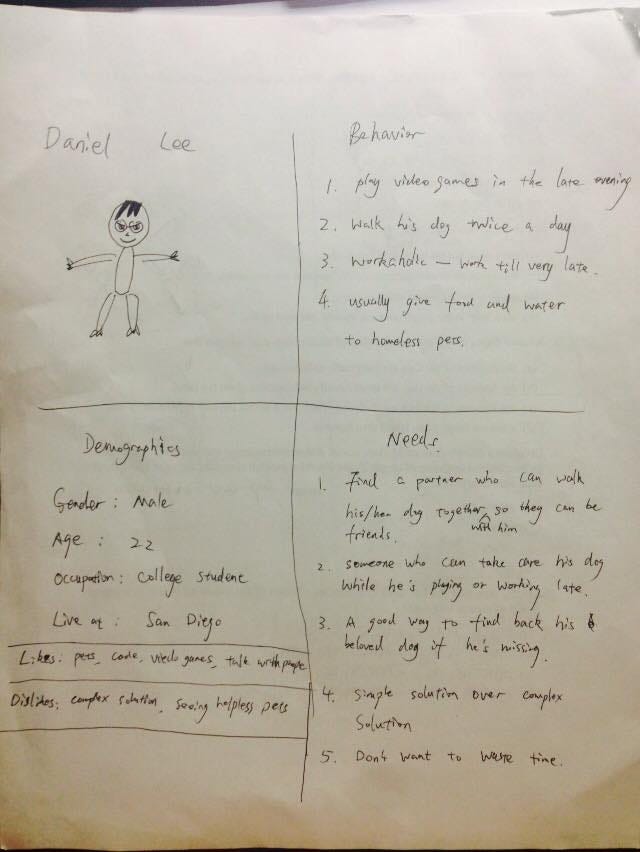 Daniel Lee
Behavior
1. play video games in the late evening
2. walk his dog twice a day
3. workaholic — work till very late.
4. usually give food and water
to homeless pets.
Demographics
Gender : Male
Age : 22
Occupation : College student
Live at : San Diego
Likes: pets, code, viedo games, talk with people
Dislikes: complex solution, seeing helpless pets
Needs.
1. Find a partner who can walk
his/her dog together with him so they can be
friends.
2. someone who can take care his dog
while he's playing or working late.
3. A good way to find back his
beloved dog if he's missing.
4. simple solution over complex
solution
5. Don't want to waste time.